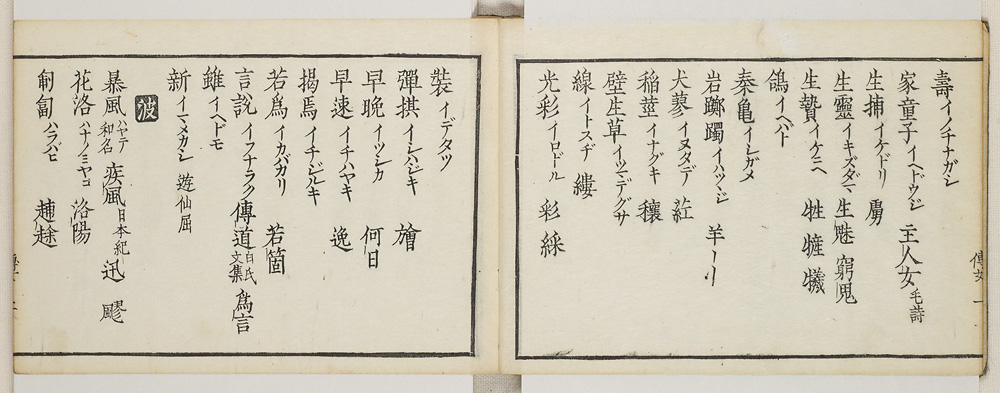 壽イノチナガシ
家童子イヘドウジ 主人女毛詩
生捕イケドリ 虜
生靈イキズダマ 生魅 窮鬼
生贄イケニヘ 牲 犠
鴿イヘバト
秦亀イシガメ
岩躑躅イハツヽジ 羊〻〻
犬蓼イヌタデ 葒
稲莖イナグキ 穰
壁生草イツマデグサ
線イトスヂ 縷
光彩イロドール 彩 綵
裝イデタツ
彈棊イシハジキ 旝
早晩イツシカ 何日
早速イチハヤキ 逸
掲焉イチジルキ
若爲イカバカリ 若箇
言説イフナラク 傳道白氏文集 爲言
雖イヘドモ
新イマメカシ 遊仙屈
波
暴風ハヤテ和名 疾風日本紀 迅 飂
花洛ハナノミヤコ 洛陽
匍匐ハラバヒ